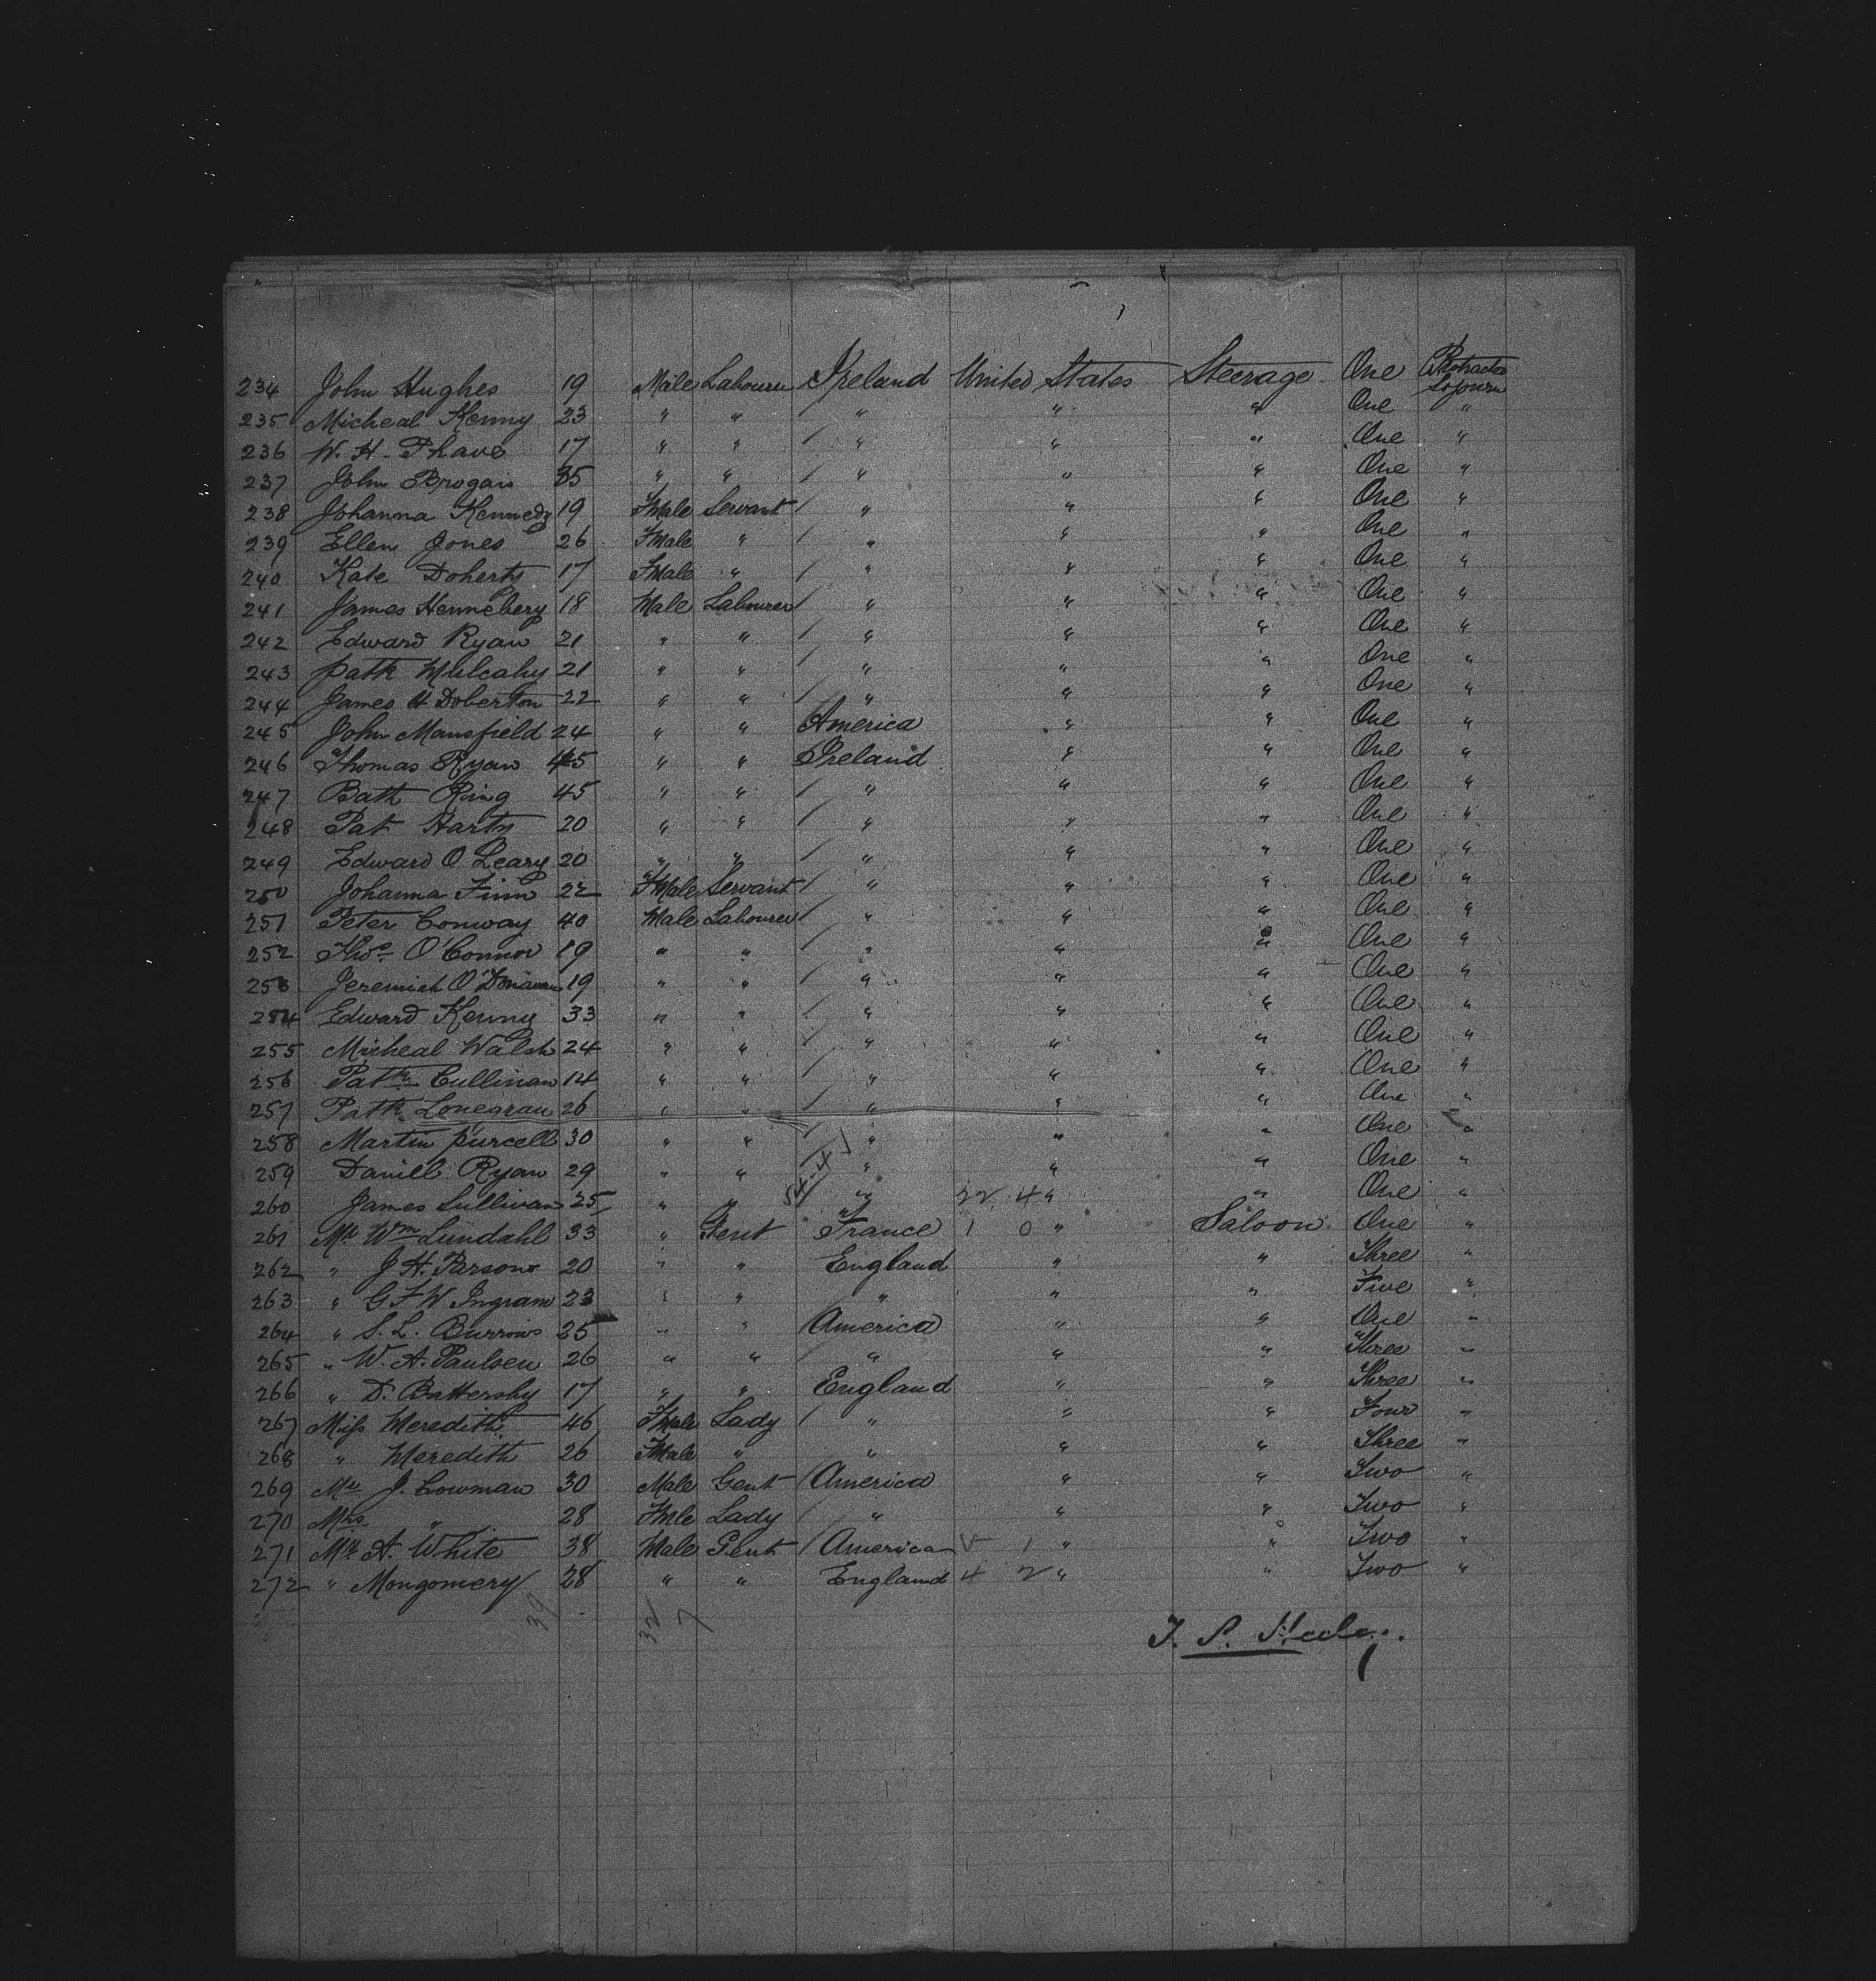 234 John Hughes 19 Male Labourer Ireland United States Steerage One Protracted Sojourn
235 Micheal Kenny 23 " " " " " One "
236 W. H. Phave 17 " " / " " " One "
237 John Brogan 35 " " / " " " One "
238 Johanna Kennedy 19 Fmale Servant / " " " One "
239 Ellen Jones 26 Fmale " / " " " One "
240 Kate Doherty 17 Fmale " / " " " One "
241 James Hennebery 18 Male Labourer / " " " One "
242 Edward Ryan 21 " " / " " " One "
243 Patk Mulcahy 21 " " / " " " One "
244 James H Doberton 22 " " / " " " One "
245 John Mansfield 24 " " America " " One "
246 Thomas Ryan 45 " " Ireland " " One "
247 Batt Ring 45 " " / " " " One "
248 Pat Harty 20 " " / " " " One "
249 Edward O Leary 20 " " / " " " One "
250 Johanna Finn 22 Fmale Servant / " " " One "
251 Peter Conway 40 Male Labourer / " " " One "
252 Thos O'Connor 19 " " / " " " One "
253 Jeremiah O'Donavan 19 " " / " " " One "
254 Edward Kenny 33 " " / " " " One "
255 Micheal Walsh 24 " " / " " " One "
256 Patk Cullinan 14 " " / " " " One "
257 Patk Lonegran 26 " " / " " " One "
258 Martin Purcell 30 " " / " " " One "
259 Daniell Ryan 29 " " / " " " One "
260 James Sullivan 25 " " " 22 4 " " One "
261 Mr Wm Lundahl 33 " Gent France 1 0 " Saloon One "
262 " J. H. Parsons 20 " " England " " Three "
263 " G F W Ingram 23 " " " " " Five "
264 " S. L. Burrows 25 " " America " " One "
265 " W. A. Paulsen 26 " " / " " " Three "
266 " D. Battersby 17 " " England " " Three "
267 Miss Meredith 46 Fmale Lady / " " " Four "
268 " Meredith 26 Fmale " / " " " Three "
269 Mr J. Cowman 30 Male Gent America " " Two "
270 Mrs " 28 Fmle Lady / " " " Two "
271 Mr A. White 38 Male Gent America 1 " " Two "
272 " Mongomery 28 " " England 4 2 " " Two "
39 32 7